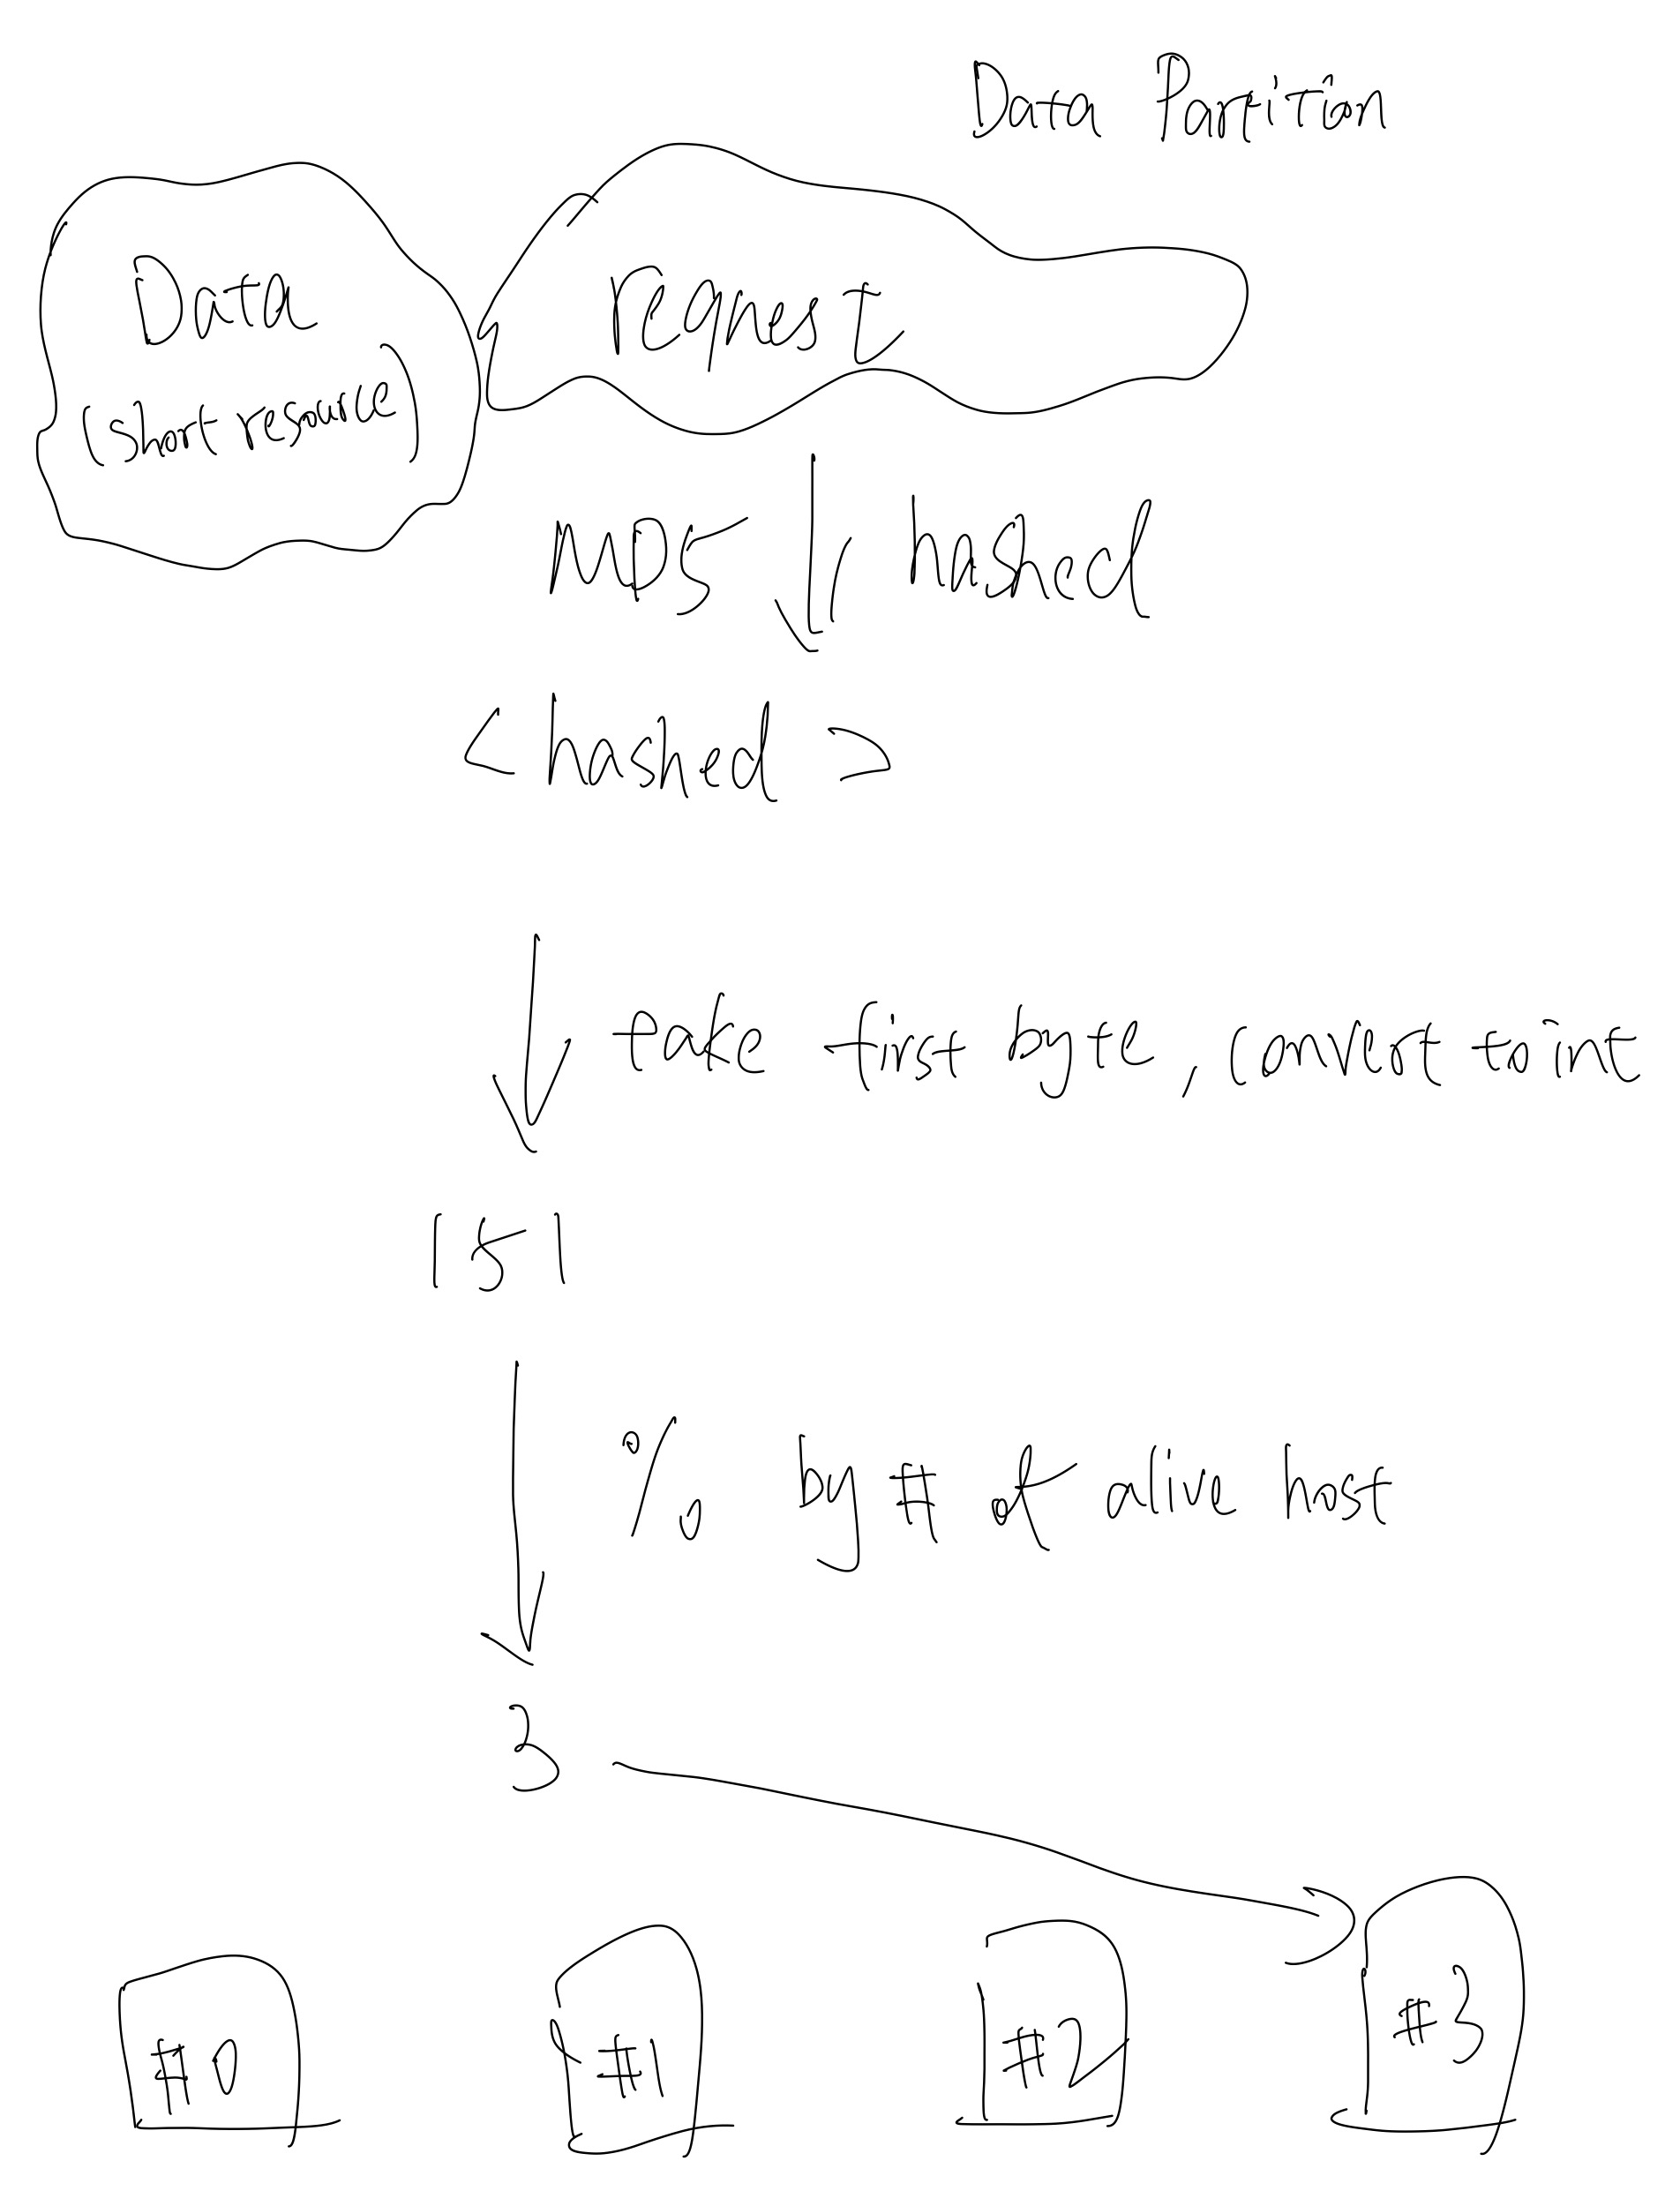 Data Partition
Data
(short resource)
request
MD5 hashed
< hashed >
take first byte, convert to int
151
% by # of alive host
3
#0
#1
#2
#3